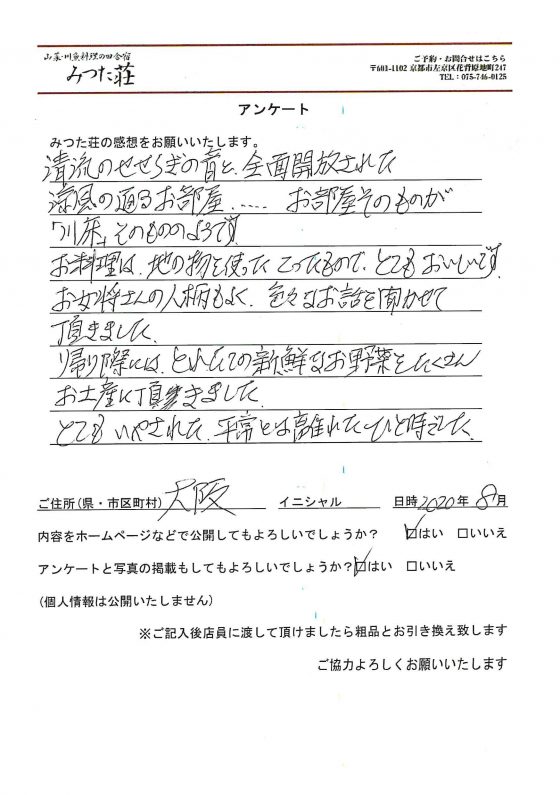 山菜・川魚料理の田舎宿
みつた荘
ご予約・お問合せはこちら
〒601-1102 京都市左京区花脊原地町247
TEL：075-746-0125
アンケート
みつた荘の感想をお願いいたします。
清流のせせらぎの音と、全面開放された
涼風の通るお部屋…… お部屋そのものが
「川床」そのもののようです。
お料理は、地の物を使った こったもので、とても おいしいです
お女将さんの人柄もよく、色々なお話を聞かせて
頂きました。
帰り際には、とれたての新鮮なお野菜をたくさん
お土産に頂きました。
とても いやされた、平常とは離れたひと時でした。
ご住所(県・市区町村) 大阪 イニシャル 日時 2020年 8月
内容をホームページなどで公開してもよろしいでしょうか？ ☑はい □いいえ
アンケートと写真の掲載もしてもよろしいでしょうか？☑はい □いいえ
(個人情報は公開いたしません)
※ご記入後店員に渡して頂けましたら粗品とお引き換え致します
ご協力よろしくお願いいたします